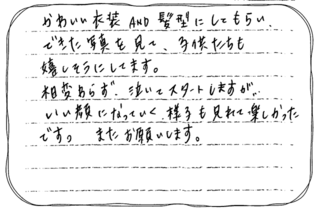 かわいい衣装 AND 髪型にしてもらい、
できた写真を見て、子供たちも
嬉しそうにしてます。
相変わらず、泣いてスタートしますが、
いい顔になっていく様子も見れて楽しかった
ですっ　またお願いします。